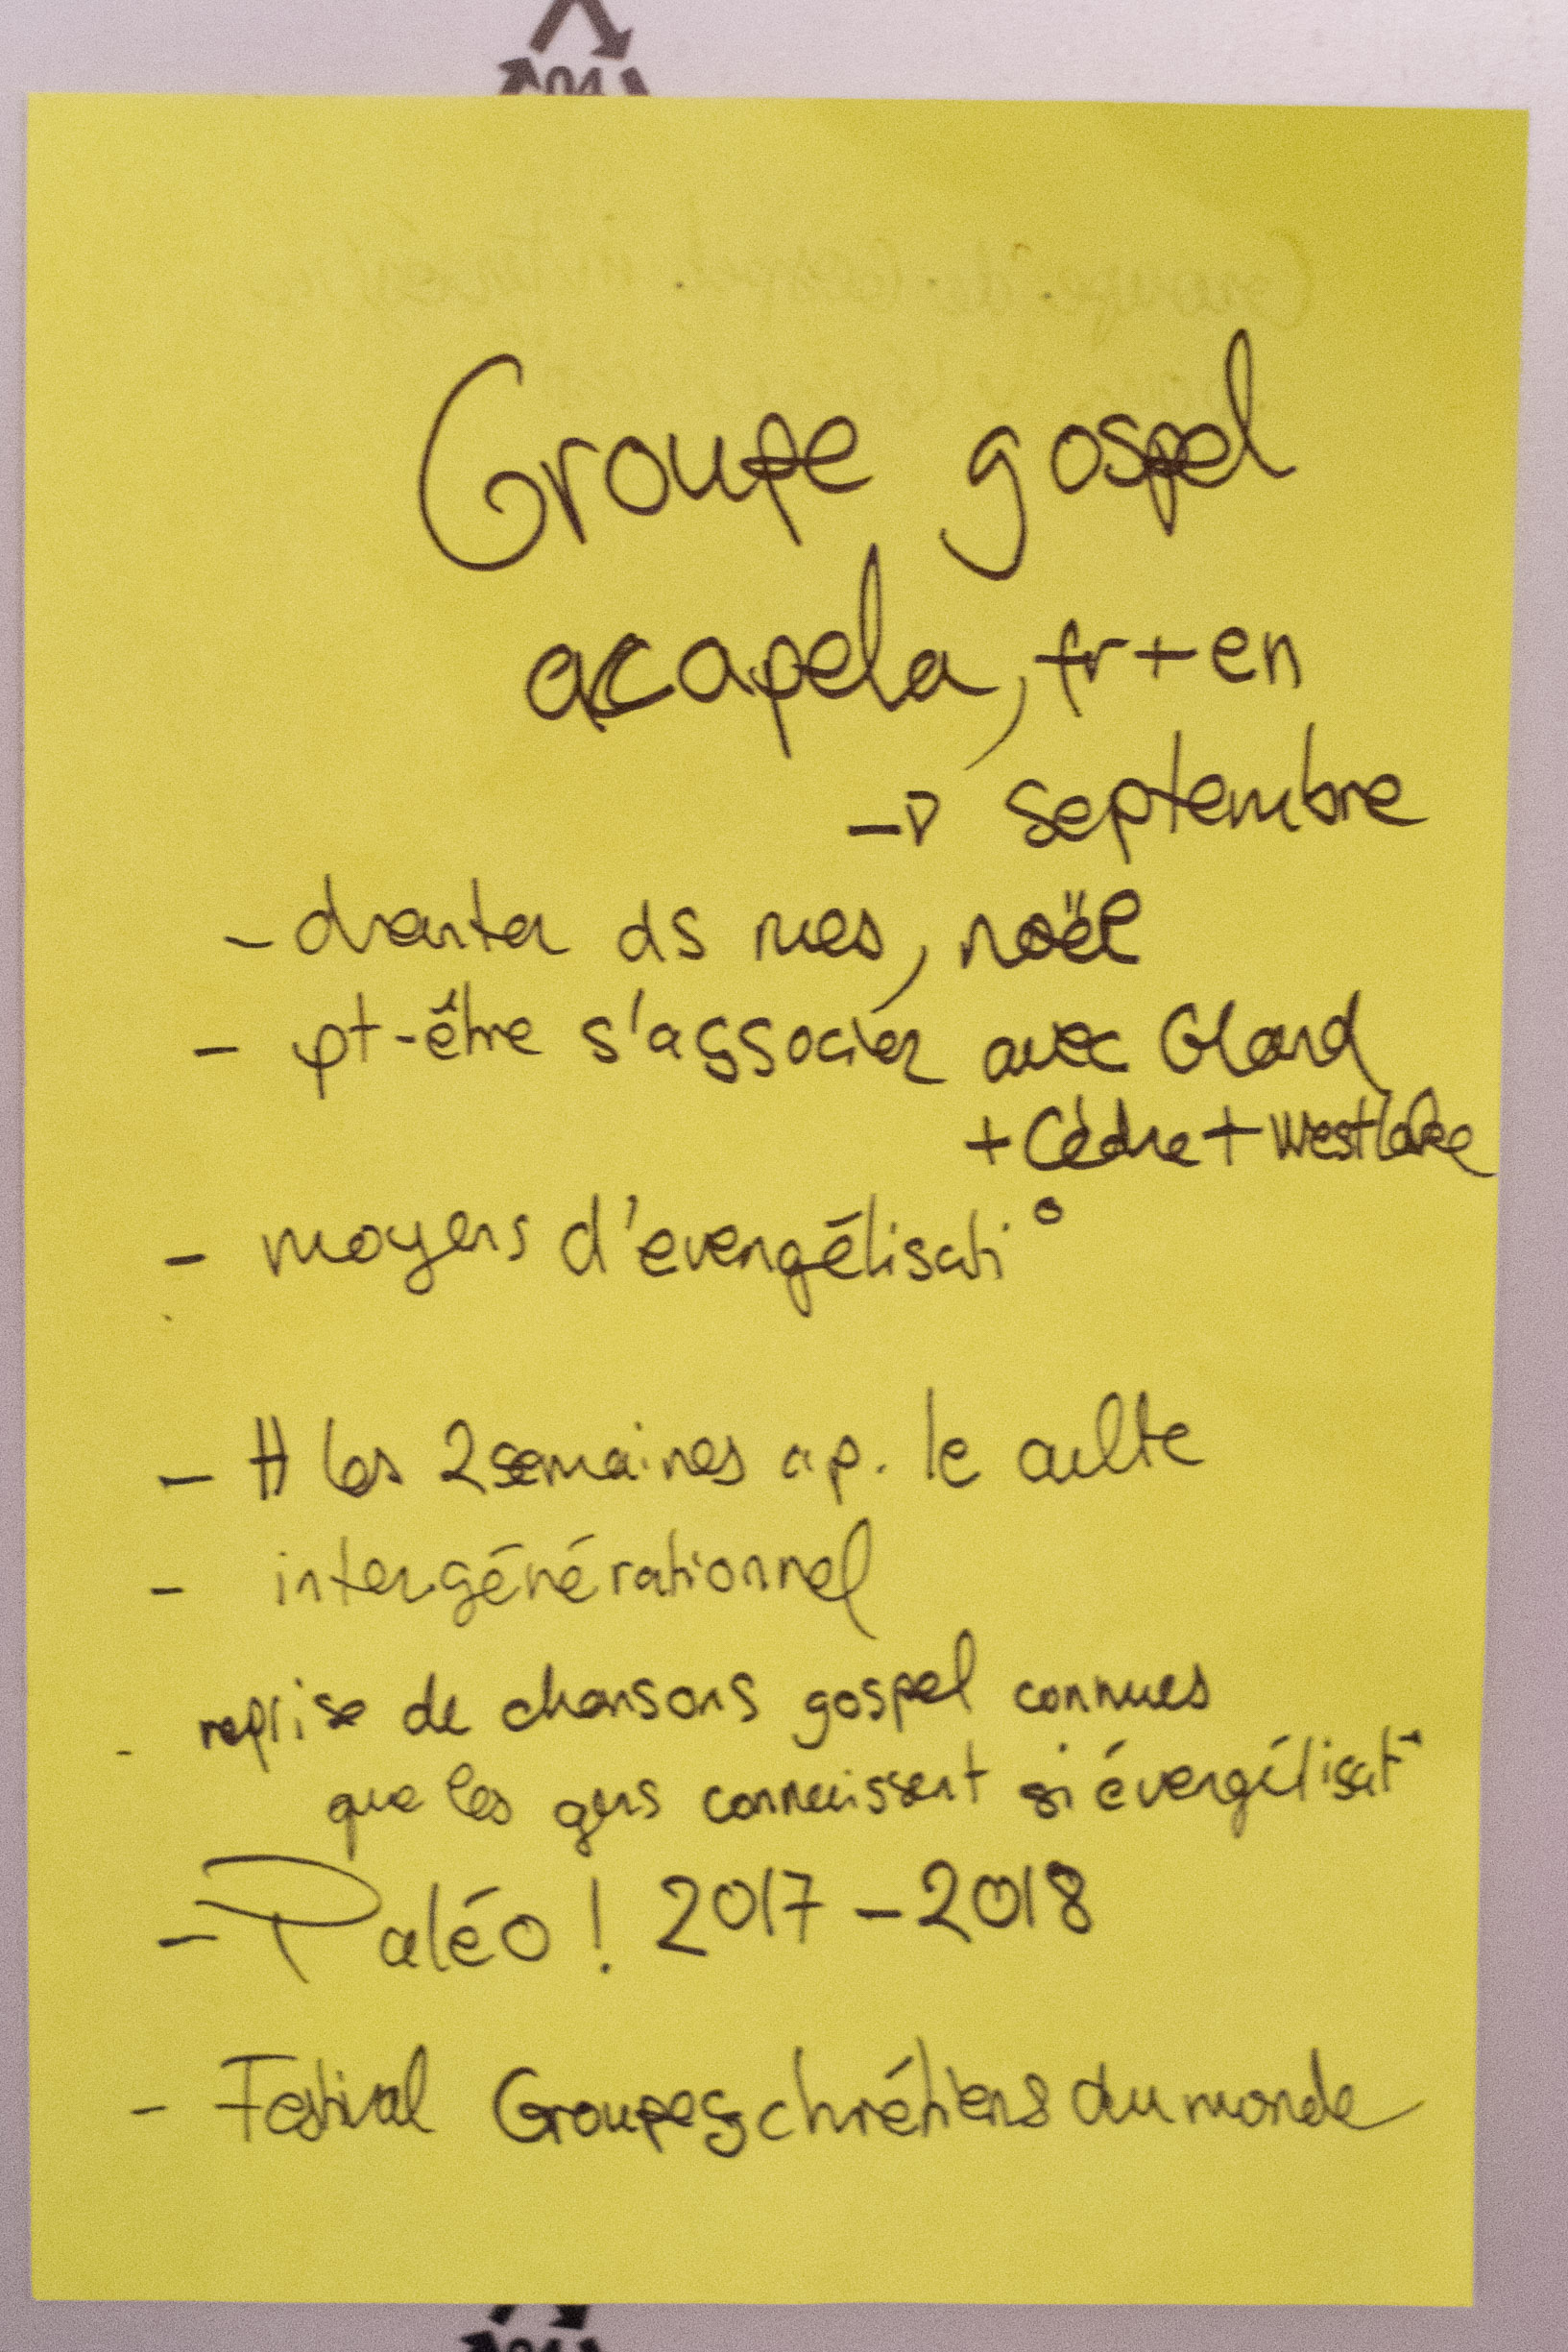 Groupe gospel
acapela, fr + en
→ septembre
- chanter ds rues, noël
- pt-être s'associer avec Gland
+ Cèdre + Westlake
- moyens d'evangélisati°
- tt les 2 semaines ap. le culte
- intergénérationnel
- reprise de chansons gospel connues
que les gens connaissent si évangélisat°
- Paléo ! 2017 - 2018
- Festival Groupes chrétiens du monde